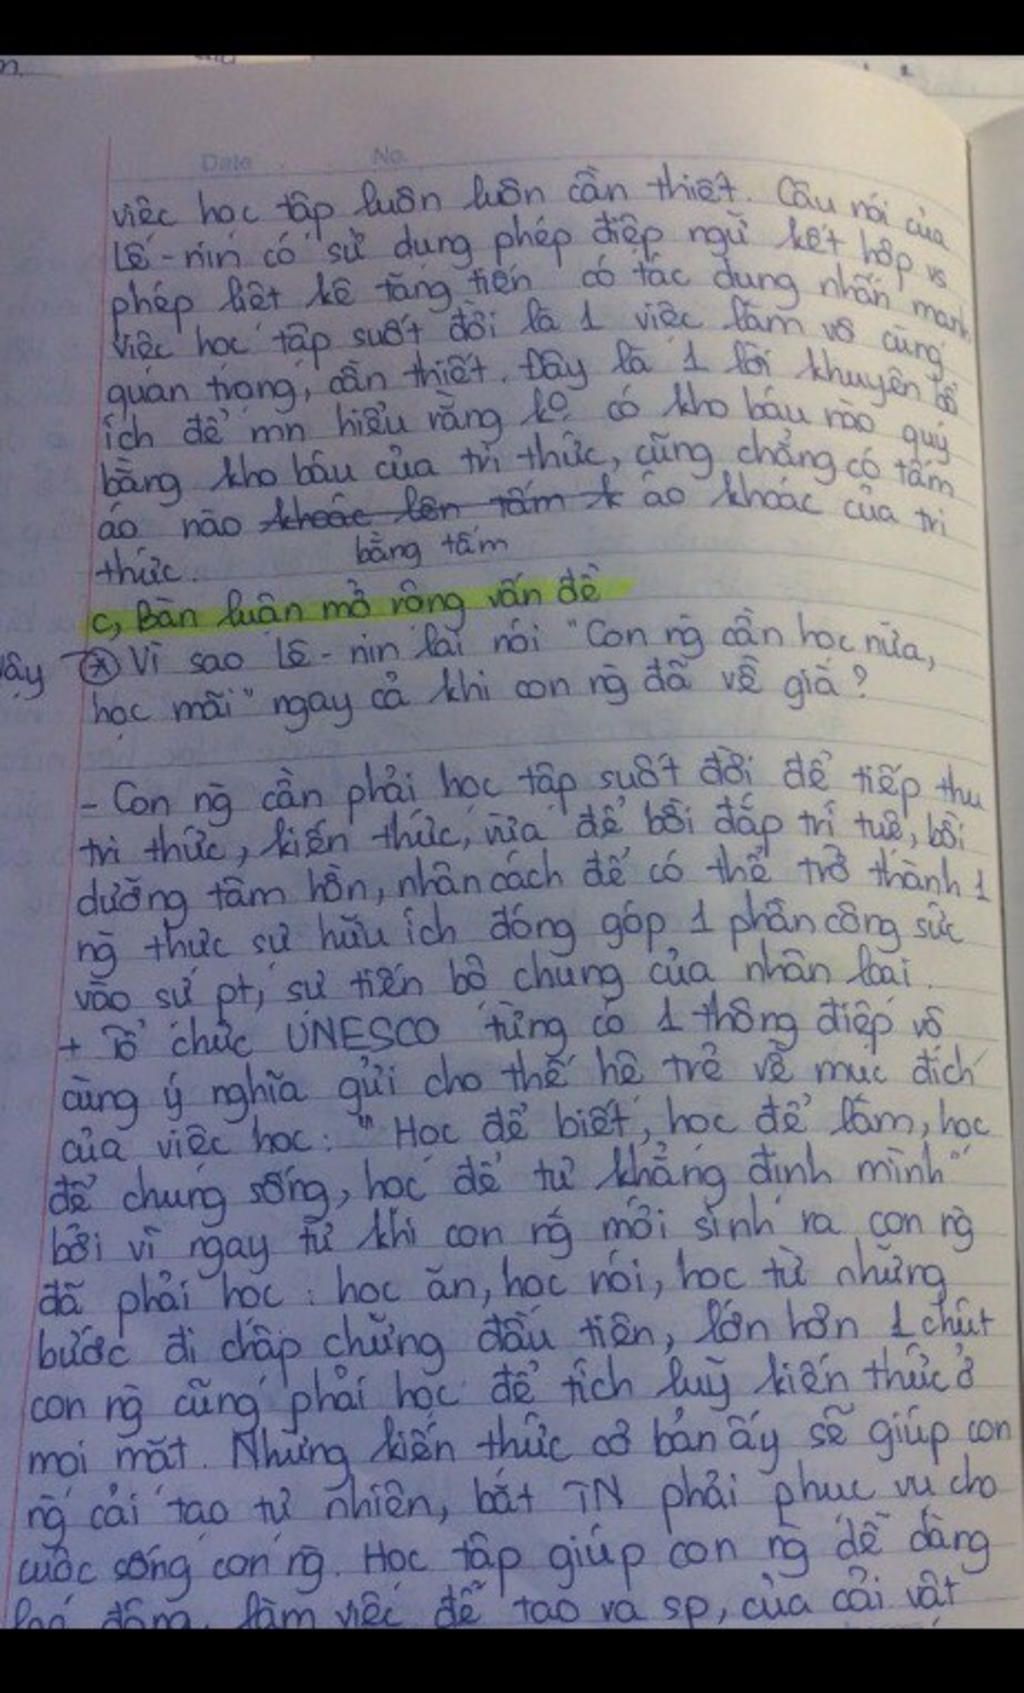 Date No.
việc học tập luôn luôn cần thiết. Câu nói của
Lê-nin có sử dụng phép điệp ngữ kết hợp vs
phép liệt kê tăng tiến có tác dụng nhấn mạnh
việc học tập suốt đời là 1 việc làm vô cùng
quan trọng, cần thiết. Đây là 1 lời khuyên bổ
ích để mn hiểu rằng ko có kho báu nào quý
bằng kho báu của tri thức, cũng chẳng có tấm
áo nào khoác lên tấm k áo khoác của tri
thức. bằng tấm
c, Bàn luận mở rộng vấn đề
vậy * Vì sao Lê-nin lại nói "Con ng cần học nữa,
học mãi" ngay cả khi con ng đã về già?
- Con ng cần phải học tập suốt đời để tiếp thu
tri thức, kiến thức, vừa để bồi đắp trí tuệ, bồi
dưỡng tâm hồn, nhân cách để có thể trở thành 1
ng thực sự hữu ích đóng góp 1 phần công sức
vào sự pt, sự tiến bộ chung của nhân loại.
+ Tổ chức UNESCO từng có 1 thông điệp vô
cùng ý nghĩa gửi cho thế hệ trẻ về mục đích
của việc học: "Học để biết, học để làm, học
để chung sống, học để tự khẳng định mình"
bởi vì ngay từ khi con ng mới sinh ra con ng
đã phải học: học ăn, học nói, học từ những
bước đi chập chững đầu tiên, lớn hơn 1 chút
con ng cũng phải học để tích luỹ kiến thức ở
mọi mặt. Những kiến thức cơ bản ấy sẽ giúp con
ng cải tạo tự nhiên, bắt TN phải phục vụ cho
cuộc sống con ng. Học tập giúp con ng dễ dàng
lao động, làm việc để tạo ra sp, của cải vật